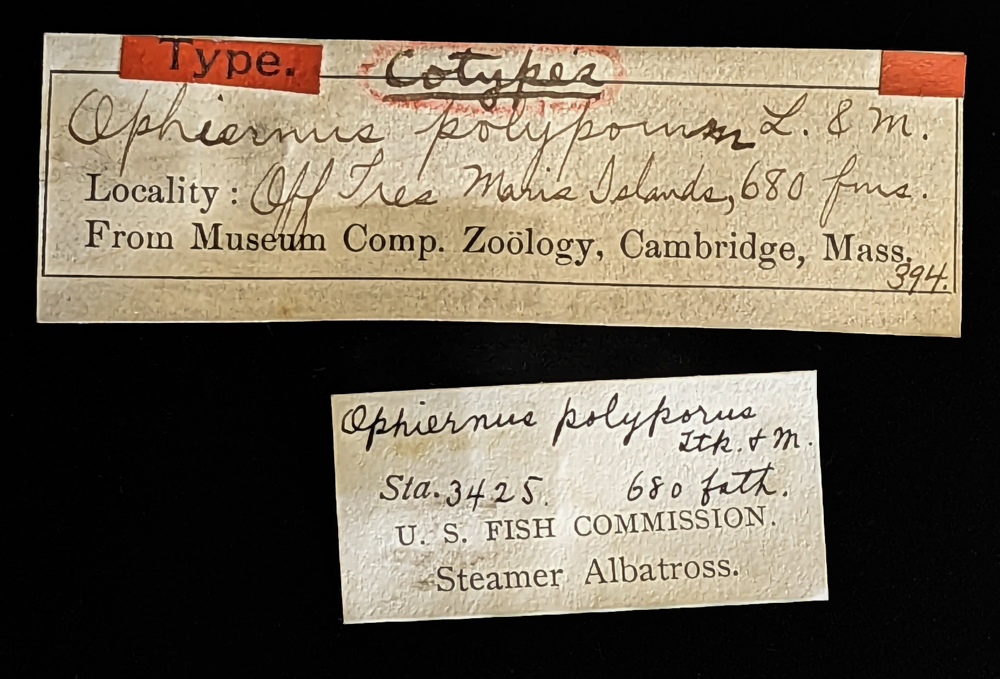 Type. Cotypes
Ophiernus polyporum L. & M.
Locality: Off Tres Maris Islands, 680 fms.
From Museum Comp. Zoölogy, Cambridge, Mass.
394.
Ophiernus polyporus
Ltk. & M.
Sta. 3425. 680 fath.
U. S. FISH COMMISSION.
Steamer Albatross.